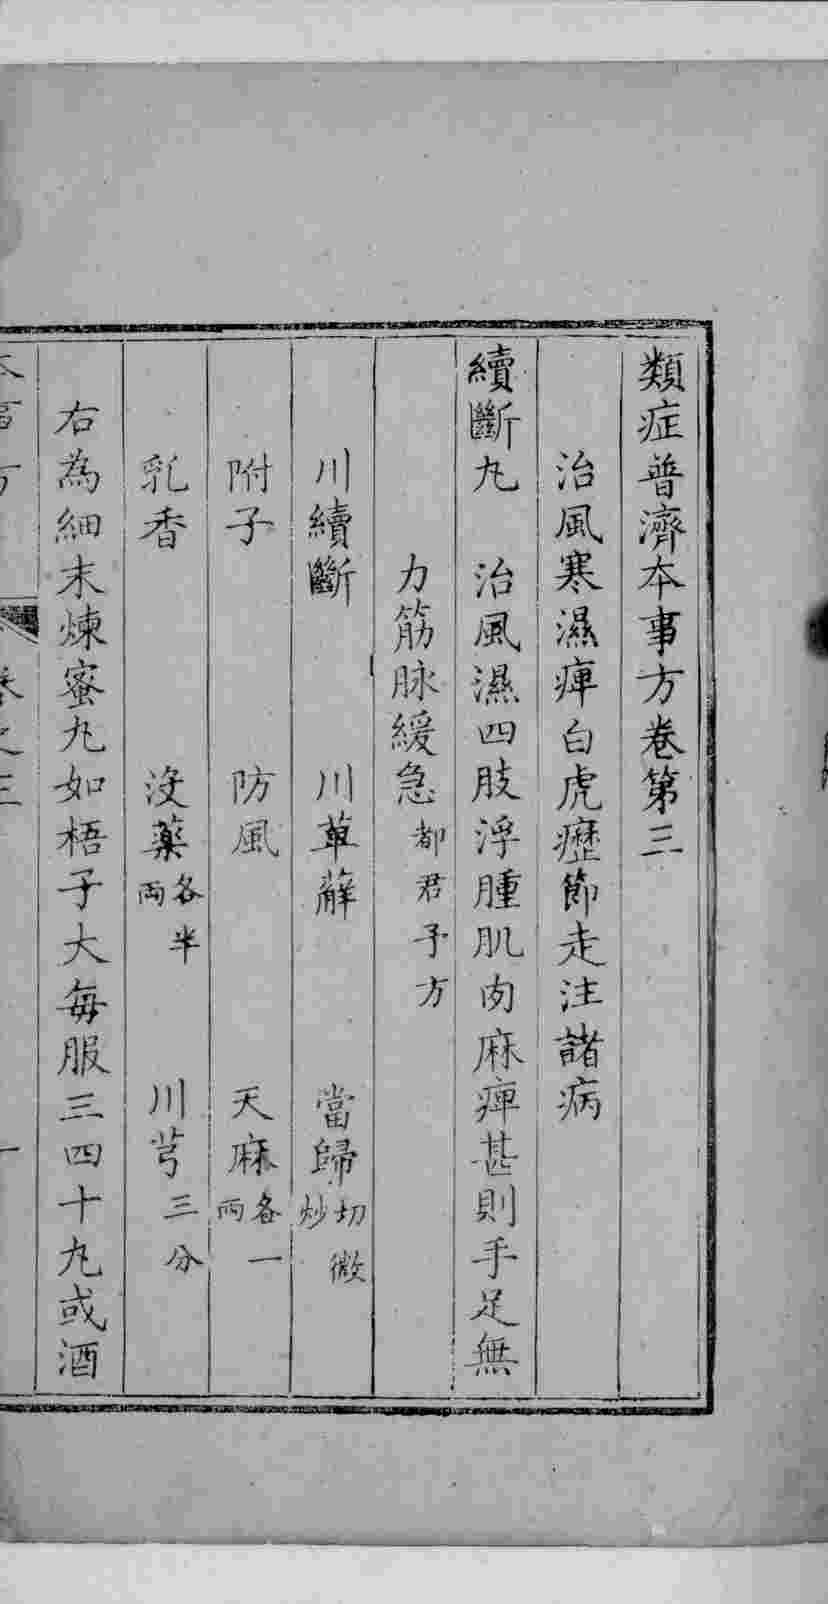 類症普濟本事方卷第三
治風寒濕痺白虎癧節走注諸病
續斷丸　治風濕四肢浮腫肌肉麻痺甚則手足無
力筋脉緩急都君予方
川續斷　川萆薢　當歸切微炒
附子　防風　天麻各一兩
乳香　沒藥各半兩　川芎三分
右為細末煉蜜丸如梧子大每服三四十丸或酒
本事方　卷之三　一